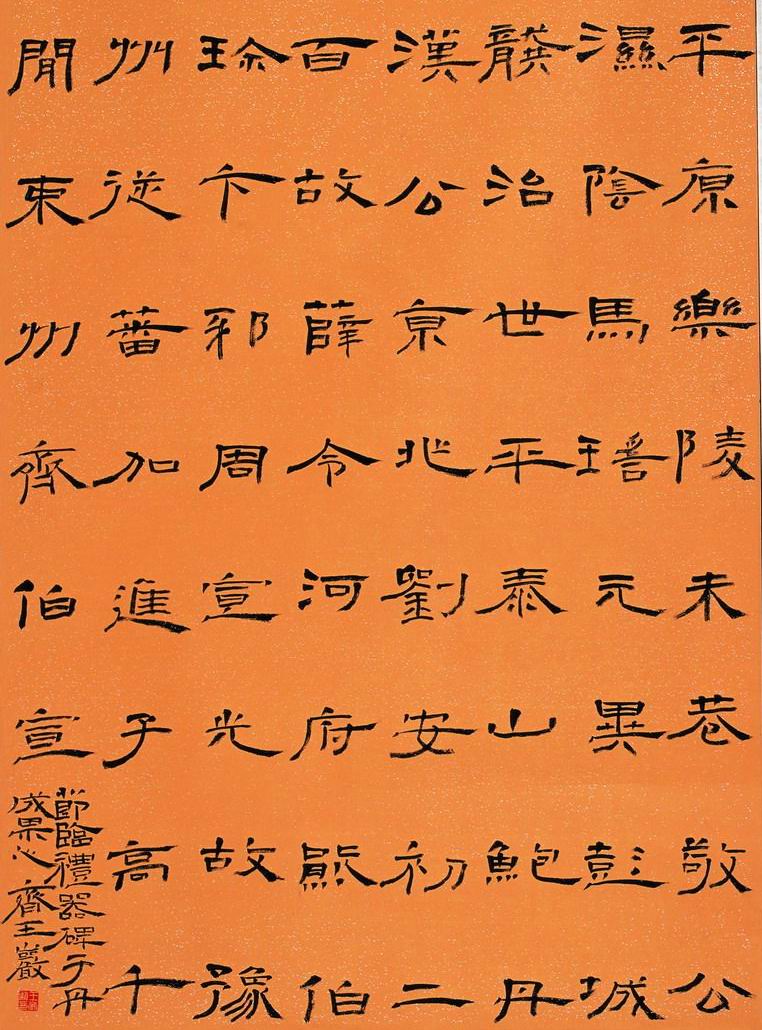 平原樂陵朱恭敬公
濕陰馬瑤元冀彭城
龔治世平泰山鮑丹
漢公京兆劉安初二
百故薛令河府熊伯
珍卞邳周宣光故豫
州從蕃加進子高千
間東州齊伯宣
節臨禮器碑于丹
成果心齋王巖